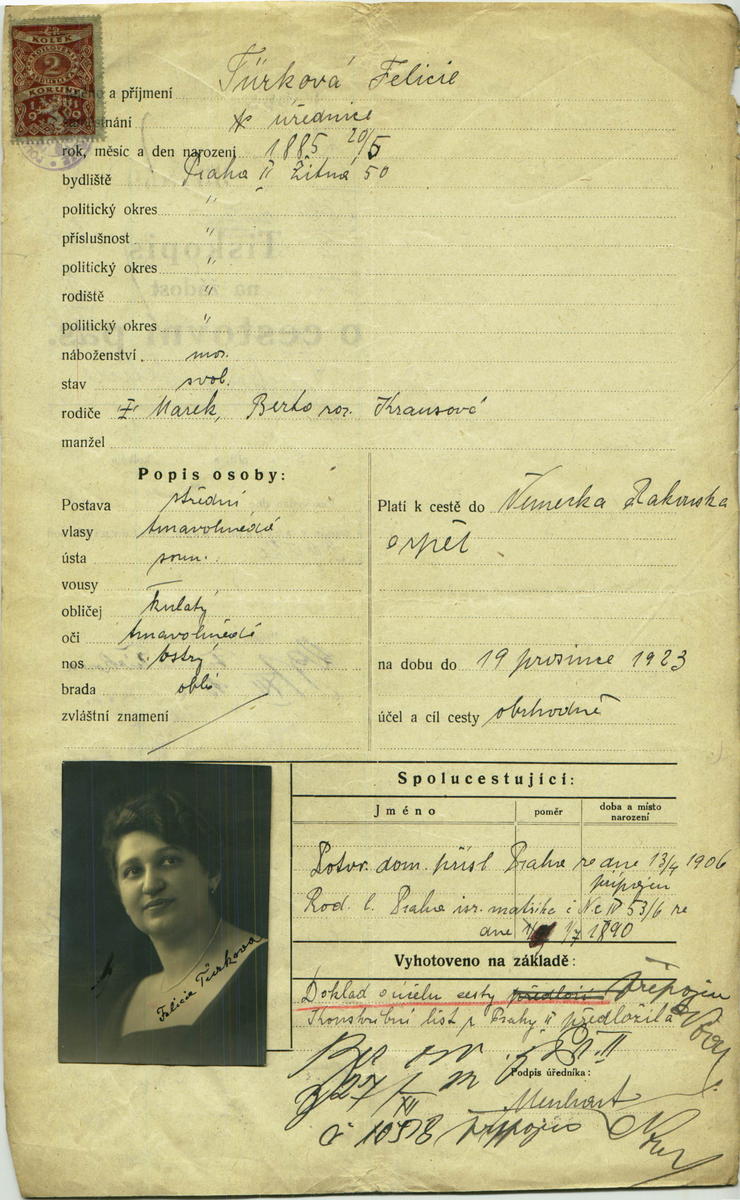 KOLEK
2
KORUNE
a příjmení Türková Felicie
stnání úřednice
rok, měsíc a den narození 1885 20/5
bydliště Praha II Žitná 50
politický okres "
příslušnost "
politický okres "
rodiště "
politický okres "
náboženství mos.
stav svob.
rodiče Marek, Berta roz. Krausová
manžel
Popis osoby:
Postava střední
vlasy tmavohnědé
ústa soum.
vousy
obličej kulatý
oči tmavohnědé
nos ostrý
brada oblá
zvláštní znamení
Platí k cestě do Německa Rakouska
a zpět
na dobu do 19 prosince 1923
účel a cíl cesty obchodně
Spolucestující:
Jméno
poměr
doba a místo narození
Potvr. dom. přísl. Praha ze dne 13/4 1906
připojen
Rod. l. Praha isr. matrika č. N.e. IV 53/6 ze
dne 1/7 1890
Vyhotoveno na základě:
Doklad o účelu cesty předloží Připojen
Konskribční list z Prahy II předložila
Podpis úředníka:
27/XII
č 10578 Připojen
Felicie Türkova